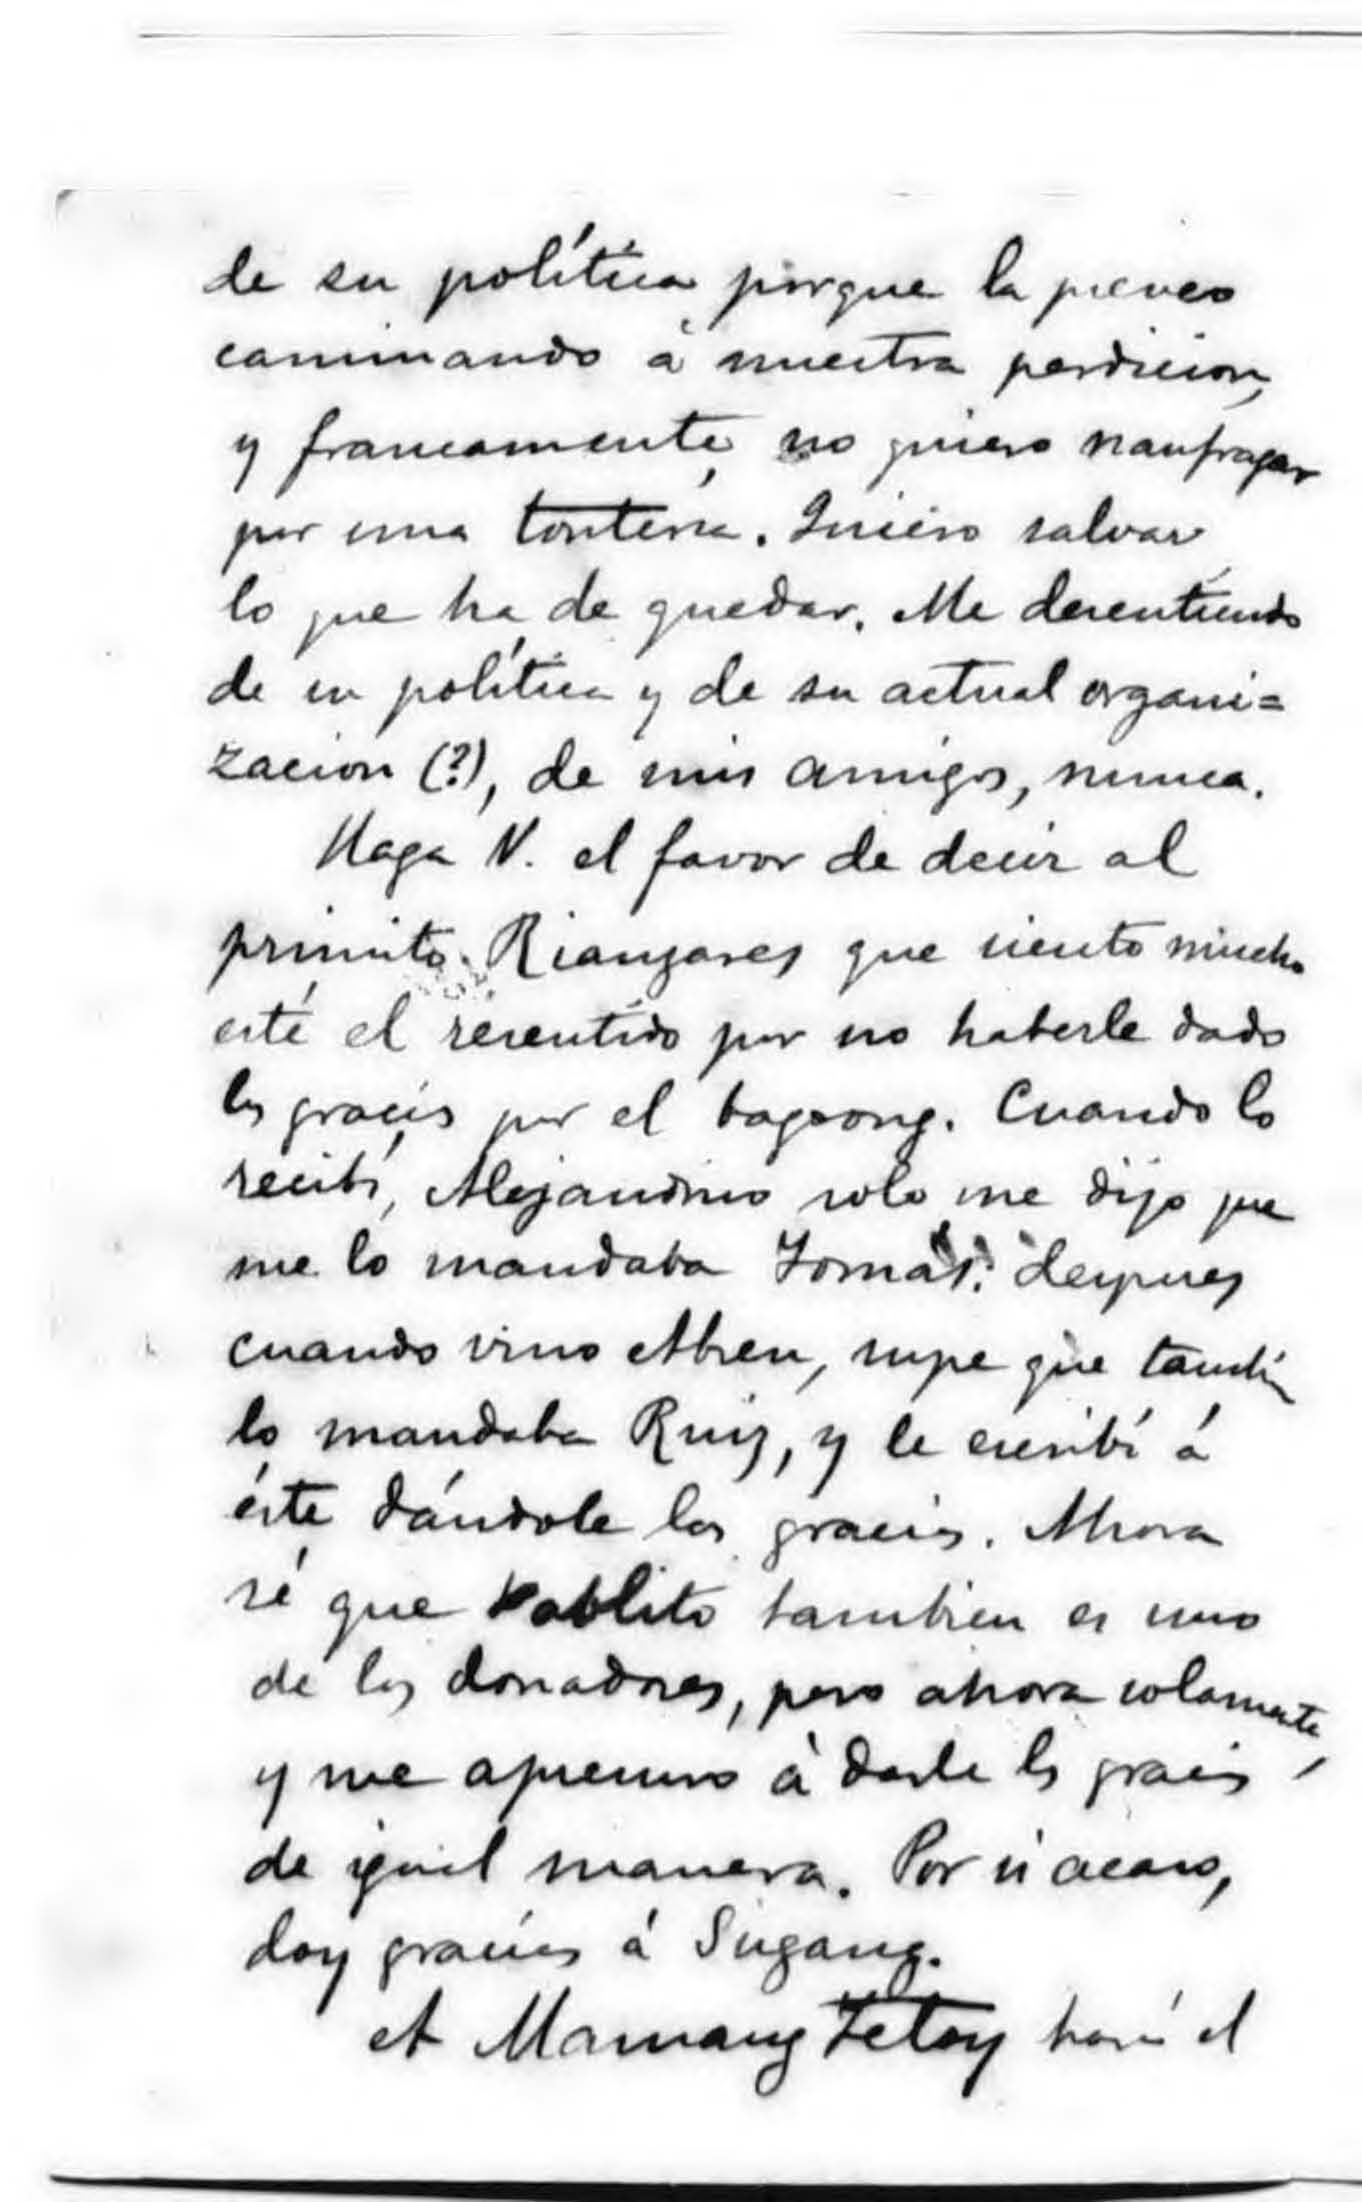 de su política porque la preveo
caminando á nuestra perdicion,
y francamente, no quiero naufragar
por una tontería. Quiero salvar
lo que ha de quedar. Me desentiendo
de su política y de su actual organi=
zacion (?), de mis amigos, nunca.
Haga V. el favor de decir al
primito Rianzares que siento mucho
esté el resentido por no haberle dado
las gracias por el bagoong. Cuando lo
recibí, Alejandrino solo me dijo que
me lo mandaba Tomás: despues
cuando vino Abreu, supe que tambien
lo mandaba Ruiz, y le escribí á
éste dándole las gracias. Ahora
sé que Pablito tambien es uno
de los donadores, pero ahora solamente,
y me apresuro á darle las gracias
de igual manera. Por si acaso,
doy gracias á Sugang.
A Mamang Tetay hará el